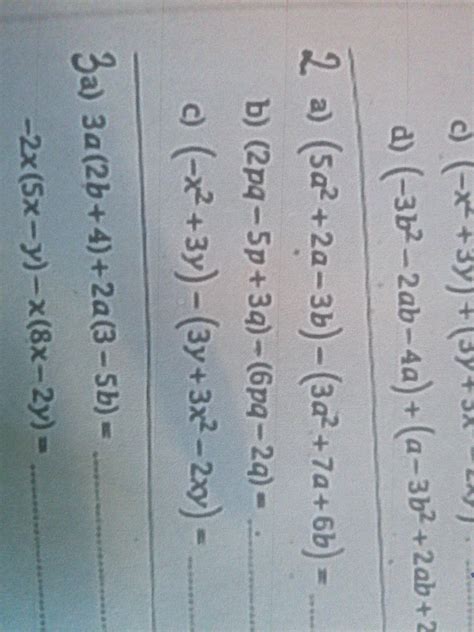 c) (-x² + 3y) + (3y + 3x² - 2xy)
d) (-3b² - 2ab - 4a) + (a - 3b² + 2ab + 2
2 a) (5a² + 2a - 3b) - (3a² + 7a + 6b) = ....
b) (2pq - 5p + 3q) - (6pq - 2q) = ..........
c) (-x² + 3y) - (3y + 3x² - 2xy) = ........
3a) 3a(2b + 4) + 2a(3 - 5b) = ..................
-2x(5x - y) - x(8x - 2y) = ..................